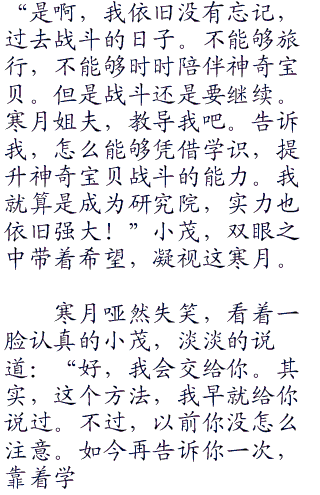 “是啊，我依旧没有忘记，
过去战斗的日子。不能够旅
行，不能够时时陪伴神奇宝
贝。但是战斗还是要继续。
寒月姐夫，教导我吧。告诉
我，怎么能够凭借学识，提
升神奇宝贝战斗的能力。我
就算是成为研究院，实力也
依旧强大！”小茂，双眼之
中带着希望，凝视这寒月。
寒月哑然失笑，看着一
脸认真的小茂，淡淡的说
道：“好，我会交给你。其
实，这个方法，我早就给你
说过。不过，以前你没怎么
注意。如今再告诉你一次，
靠着学